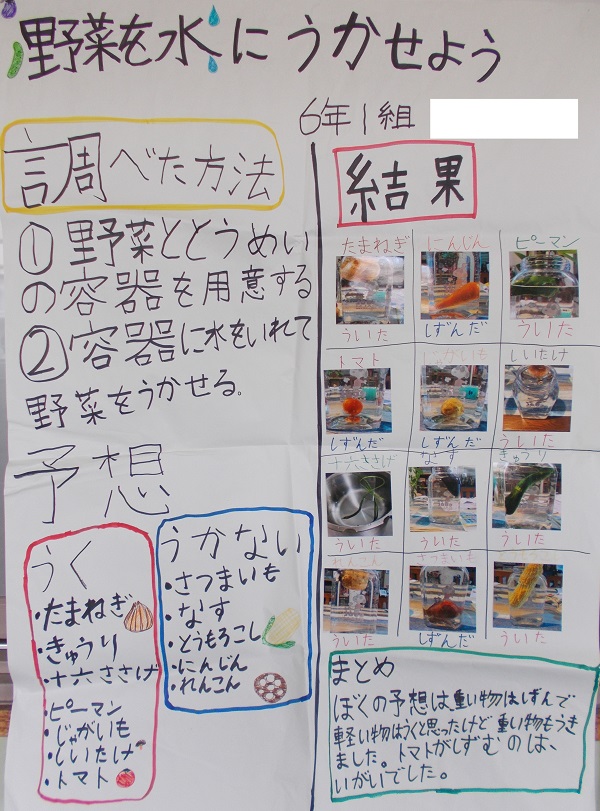 野菜を水にうかせよう
6年1組
調べた方法
①野菜ととうめい
の容器を用意する
②容器に水をいれて
野菜をうかせる。
予想
うく
・たまねぎ
・きゅうり
・十六ささげ
・ピーマン
・じゃがいも
・しいたけ
・トマト
うかない
・さつまいも
・なす
・とうもろこし
・にんじん
・れんこん
結果
たまねぎ にんじん ピーマン
ういた しずんだ ういた
トマト じゃがいも しいたけ
しずんだ しずんだ ういた
十六ささげ なす きゅうり
ういた ういた ういた
れんこん さつまいも
ういた しずんだ ういた
まとめ
ぼくの予想は重い物はしずんで
軽い物はうくと思ったけど重い物もうき
ました。トマトがしずむのは、
いがいでした。